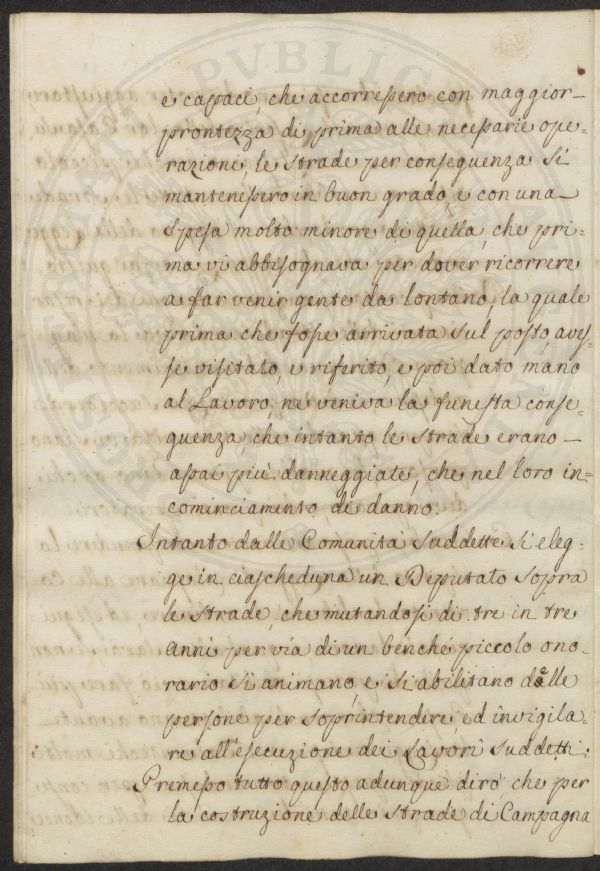 e capaci, che accorressero con maggior-
prontezza di prima alle necessarie ope-
razioni, le strade per conseguenza si
mantenessero in buon grado, e con una-
spesa molto minore di quella, che pri-
ma vi abbisognava per dover ricorrere
a far venir gente da lontano, la quale
prima che fosse arrivata sul posto, aves-
se visitato, e riferito, e poi dato mano
al Lavoro, ne veniva la funesta conse-
guenza, che intanto le strade erano-
assai più danneggiate, che nel loro in-
cominciamento di danno.
Intanto dalle Comunità suddette si eleg-
ge in ciascheduna un Deputato sopra
le strade, che mutandosi di tre in tre
anni per via di un benché piccolo ono-
rario si animano, e si abilitano delle
persone per soprintendere, ed invigila-
re all'esecuzione dei Lavori suddetti.
Premesso tutto questo adunque dirò che per
la costruzione delle strade di Campagna